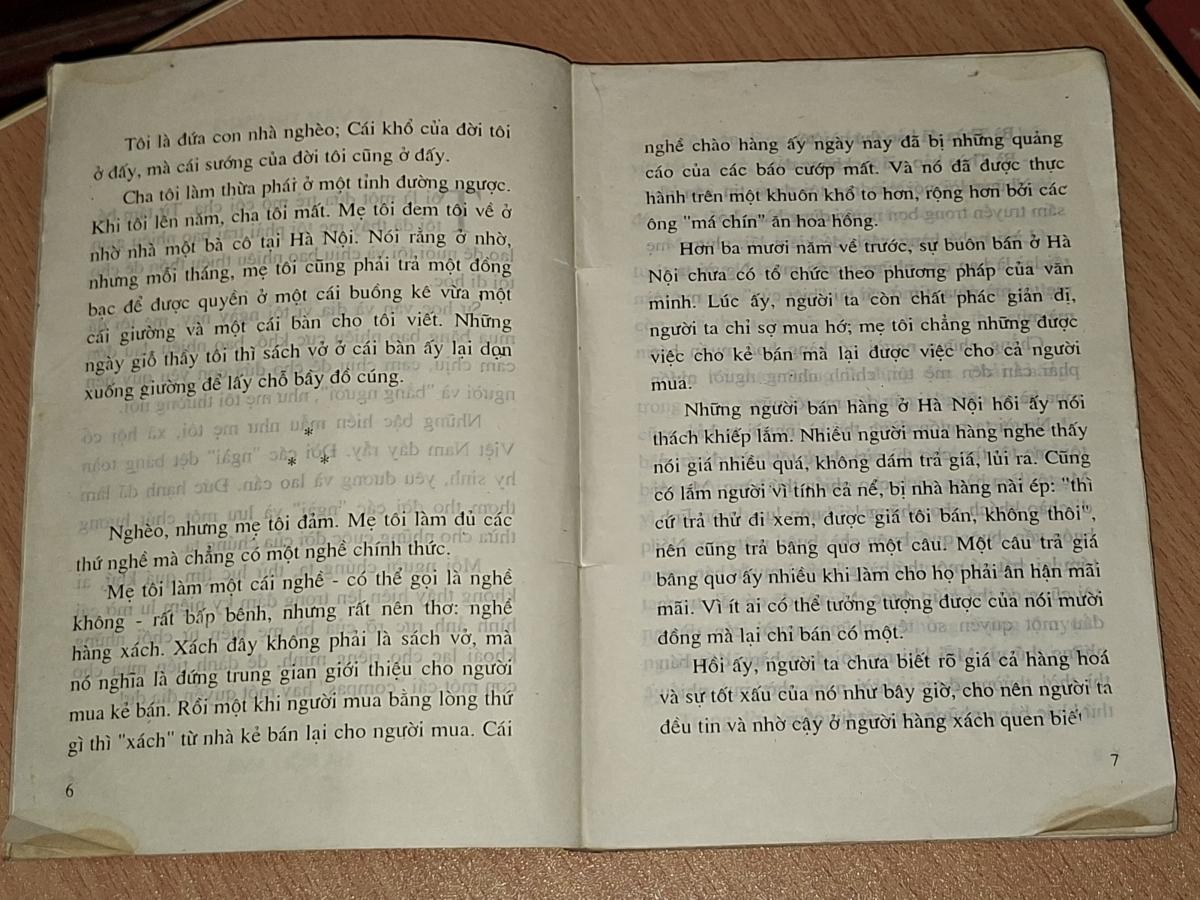 Tôi là đứa con nhà nghèo; Cái khổ của đời tôi
ở đấy, mà cái sướng của đời tôi cũng ở đấy.
Cha tôi làm thừa phái ở một tỉnh đường ngược.
Khi tôi lên năm, cha tôi mất. Mẹ tôi đem tôi về ở
nhờ nhà một bà cô tại Hà Nội. Nói rằng ở nhờ,
nhưng mỗi tháng, mẹ tôi cũng phải trả một đồng
bạc để được quyền ở một cái buồng kê vừa một
cái giường và một cái bàn cho tôi viết. Những
ngày giỗ thầy tôi thì sách vở ở cái bàn ấy lại dọn
xuống giường để lấy chỗ bầy đồ cúng.
*
* *
Nghèo, nhưng mẹ tôi đảm. Mẹ tôi làm đủ các
thứ nghề mà chẳng có một nghề chính thức.
Mẹ tôi làm một cái nghề - có thể gọi là nghề
không - rất bấp bênh, nhưng rất nên thơ: nghề
hàng xách. Xách đây không phải là sách vở, mà
nó nghĩa là đứng trung gian giới thiệu cho người
mua kẻ bán. Rồi một khi người mua bằng lòng thứ
gì thì "xách" từ nhà kẻ bán lại cho người mua. Cái
6
nghề chào hàng ấy ngày nay đã bị những quảng
cáo của các báo cướp mất. Và nó đã được thực
hành trên một khuôn khổ to hơn, rộng hơn bởi các
ông "má chín" ăn hoa hồng.
Hơn ba mươi năm về trước, sự buôn bán ở Hà
Nội chưa có tổ chức theo phương pháp của văn
minh. Lúc ấy, người ta còn chất phác giản dị,
người ta chỉ sợ mua hớ; mẹ tôi chẳng những được
việc cho kẻ bán mà lại được việc cho cả người
mua.
Những người bán hàng ở Hà Nội hồi ấy nói
thách khiếp lắm. Nhiều người mua hàng nghe thấy
nói giá nhiều quá, không dám trả giá, lủi ra. Cũng
có lắm người vì tính cả nể, bị nhà hàng nài ép: "thì
cứ trả thử đi xem, được giá tôi bán, không thôi",
nên cũng trả bâng quơ một câu. Một câu trả giá
bâng quơ ấy nhiều khi làm cho họ phải ân hận mãi
mãi. Vì ít ai có thể tưởng tượng được của nói mười
đồng mà lại chỉ bán có một.
Hồi ấy, người ta chưa biết rõ giá cả hàng hoá
và sự tốt xấu của nó như bây giờ, cho nên người ta
đều tin và nhờ cậy ở người hàng xách quen biết
7